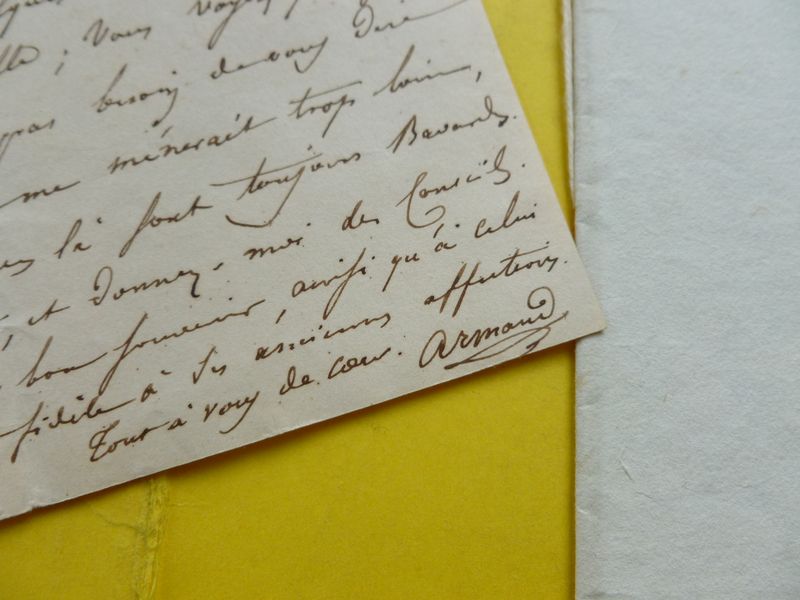 ; vous voyez
pas besoin de vous dire
me mènerait trop loin,
là sont toujours Bavards.
et donnez-moi des Conseils.
bon souvenir, ainsi qu'à celui
fidèle à ses anciennes affections.
Tout à vous de cœur. Armand